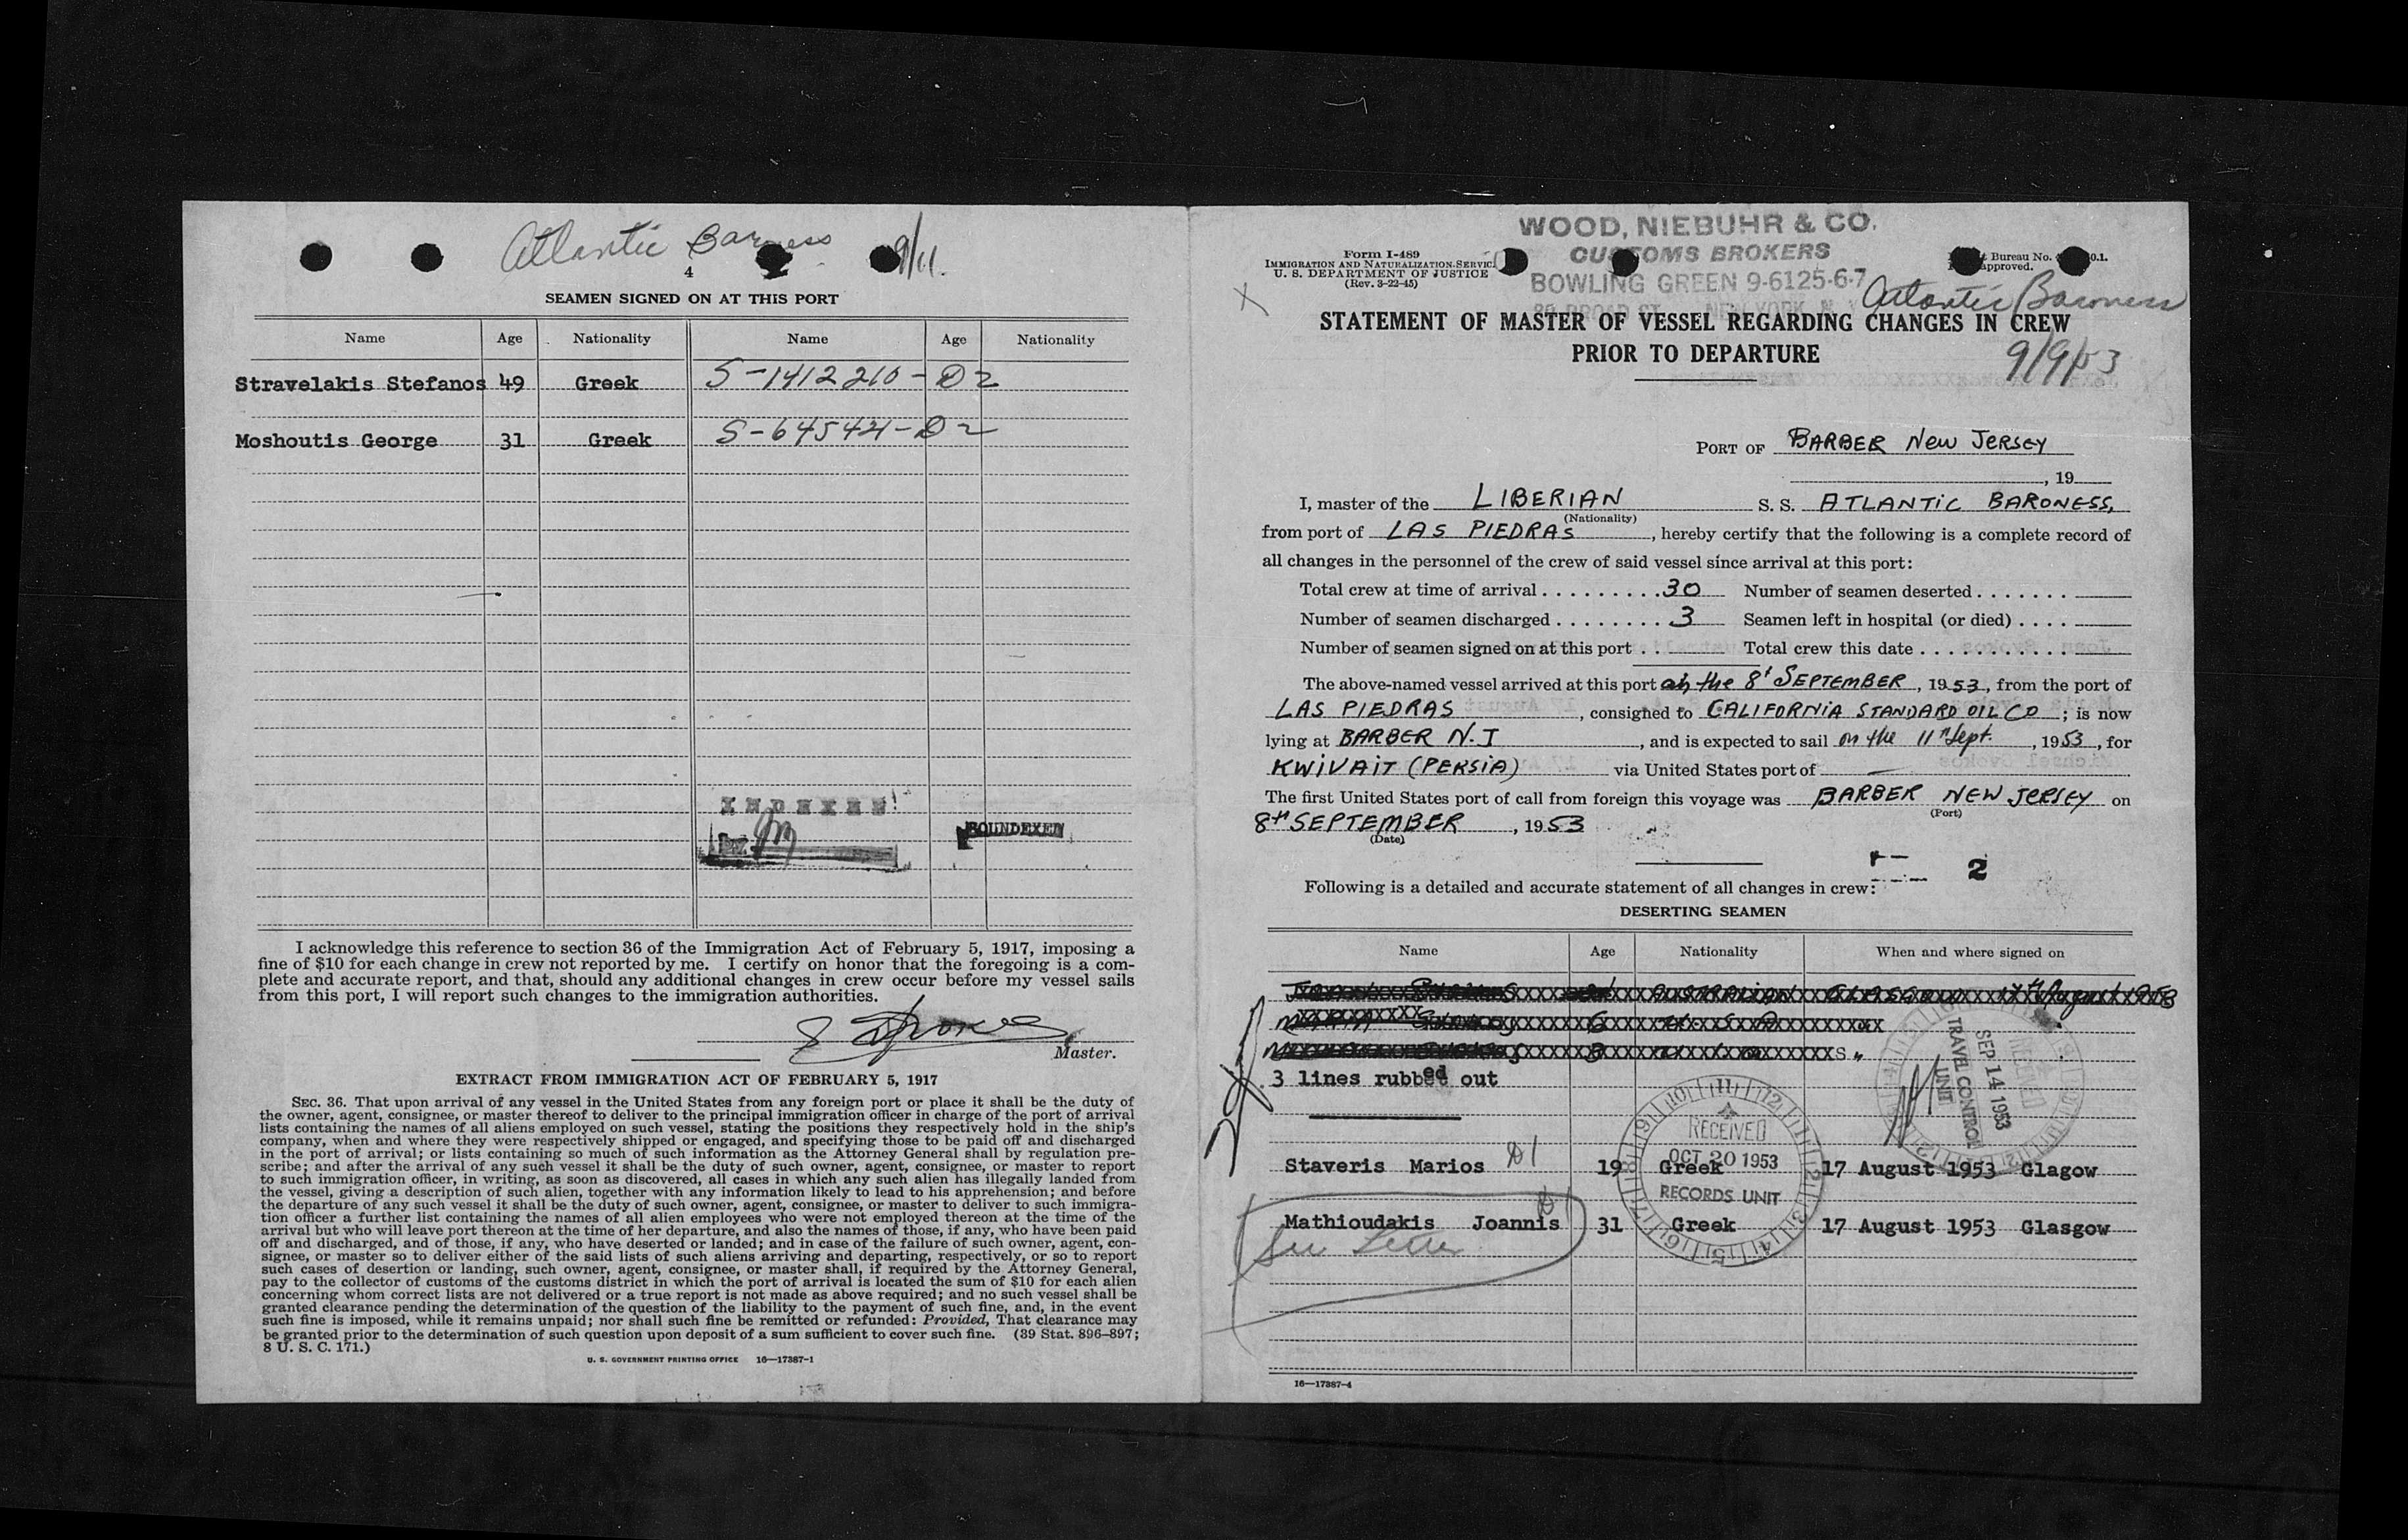 Atlantic Baroness 9/11.
4
SEAMEN SIGNED ON AT THIS PORT
Name Age Nationality Name Age Nationality
Stravelakis Stefanos 49 Greek S-1412210-D2
Moshoutis George 31 Greek S-645421-D2
INDEXED
SOUNDEXED
I acknowledge this reference to section 36 of the Immigration Act of February 5, 1917, imposing a
fine of $10 for each change in crew not reported by me. I certify on honor that the foregoing is a com-
plete and accurate report, and that, should any additional changes in crew occur before my vessel sails
from this port, I will report such changes to the immigration authorities.
Master.
EXTRACT FROM IMMIGRATION ACT OF FEBRUARY 5, 1917
SEC. 36. That upon arrival of any vessel in the United States from any foreign port or place it shall be the duty of
the owner, agent, consignee, or master thereof to deliver to the principal immigration officer in charge of the port of arrival
lists containing the names of all aliens employed on such vessel, stating the positions they respectively hold in the ship's
company, when and where they were respectively shipped or engaged, and specifying those to be paid off and discharged
in the port of arrival; or lists containing so much of such information as the Attorney General shall by regulation pre-
scribe; and after the arrival of any such vessel it shall be the duty of such owner, agent, consignee, or master to report
to such immigration officer, in writing, as soon as discovered, all cases in which any such alien has illegally landed from
the vessel, giving a description of such alien, together with any information likely to lead to his apprehension; and before
the departure of any such vessel it shall be the duty of such owner, agent, consignee, or master to deliver to such immigra-
tion officer a further list containing the names of all alien employees who were not employed thereon at the time of the
arrival but who will leave port thereon at the time of her departure, and also the names of those, if any, who have been paid
off and discharged, and of those, if any, who have deserted or landed; and in case of the failure of such owner, agent, con-
signee, or master so to deliver either of the said lists of such aliens arriving and departing, respectively, or so to report
such cases of desertion or landing, such owner, agent, consignee, or master shall, if required by the Attorney General,
pay to the collector of customs of the customs district in which the port of arrival is located the sum of $10 for each alien
concerning whom correct lists are not delivered or a true report is not made as above required; and no such vessel shall be
granted clearance pending the determination of the question of the liability to the payment of such fine, and, in the event
such fine is imposed, while it remains unpaid; nor shall such fine be remitted or refunded: Provided, That clearance may
be granted prior to the determination of such question upon deposit of a sum sufficient to cover such fine. (39 Stat. 896-897;
8 U. S. C. 171.)
U. S. GOVERNMENT PRINTING OFFICE 16—17387-1
WOOD, NIEBUHR & CO.
CUSTOMS BROKERS
BOWLING GREEN 9-6125-6-7
Form I-489
IMMIGRATION AND NATURALIZATION SERVICE
U. S. DEPARTMENT OF JUSTICE
(Rev. 3-22-45)
Bureau No.
approved.
Atlantic Baroness
STATEMENT OF MASTER OF VESSEL REGARDING CHANGES IN CREW
PRIOR TO DEPARTURE
9/9/53
PORT OF BARBER NEW JERSEY
, 19
I, master of the LIBERIAN S. S. ATLANTIC BARONESS,
(Nationality)
from port of LAS PIEDRAS, hereby certify that the following is a complete record of
all changes in the personnel of the crew of said vessel since arrival at this port:
Total crew at time of arrival . . . . . . . . . 30 Number of seamen deserted . . . . . . .
Number of seamen discharged . . . . . . . . 3 Seamen left in hospital (or died) . . . .
Number of seamen signed on at this port . . Total crew this date . . . . . . . . . . . .
The above-named vessel arrived at this port on the 8t SEPTEMBER, 1953, from the port of
LAS PIEDRAS, consigned to CALIFORNIA STANDARD OIL CO; is now
lying at BARBER N.J, and is expected to sail on the 11th Sept., 1953, for
KWIVAIT (PERSIA) via United States port of —
The first United States port of call from foreign this voyage was BARBER NEW JERSEY on
(Port)
8th SEPTEMBER, 1953
(Date)
2
Following is a detailed and accurate statement of all changes in crew:
DESERTING SEAMEN
Name Age Nationality When and where signed on
3 lines rubbed out
SEP 14 1953
TRAVEL CONTROL
UNIT
RECEIVED
OCT 20 1953
RECORDS UNIT
Staveris Marios D1 19 Greek 17 August 1953 Glagow
Mathioudakis Joannis D1 31 Greek 17 August 1953 Glasgow
See Letter
16—17387-4